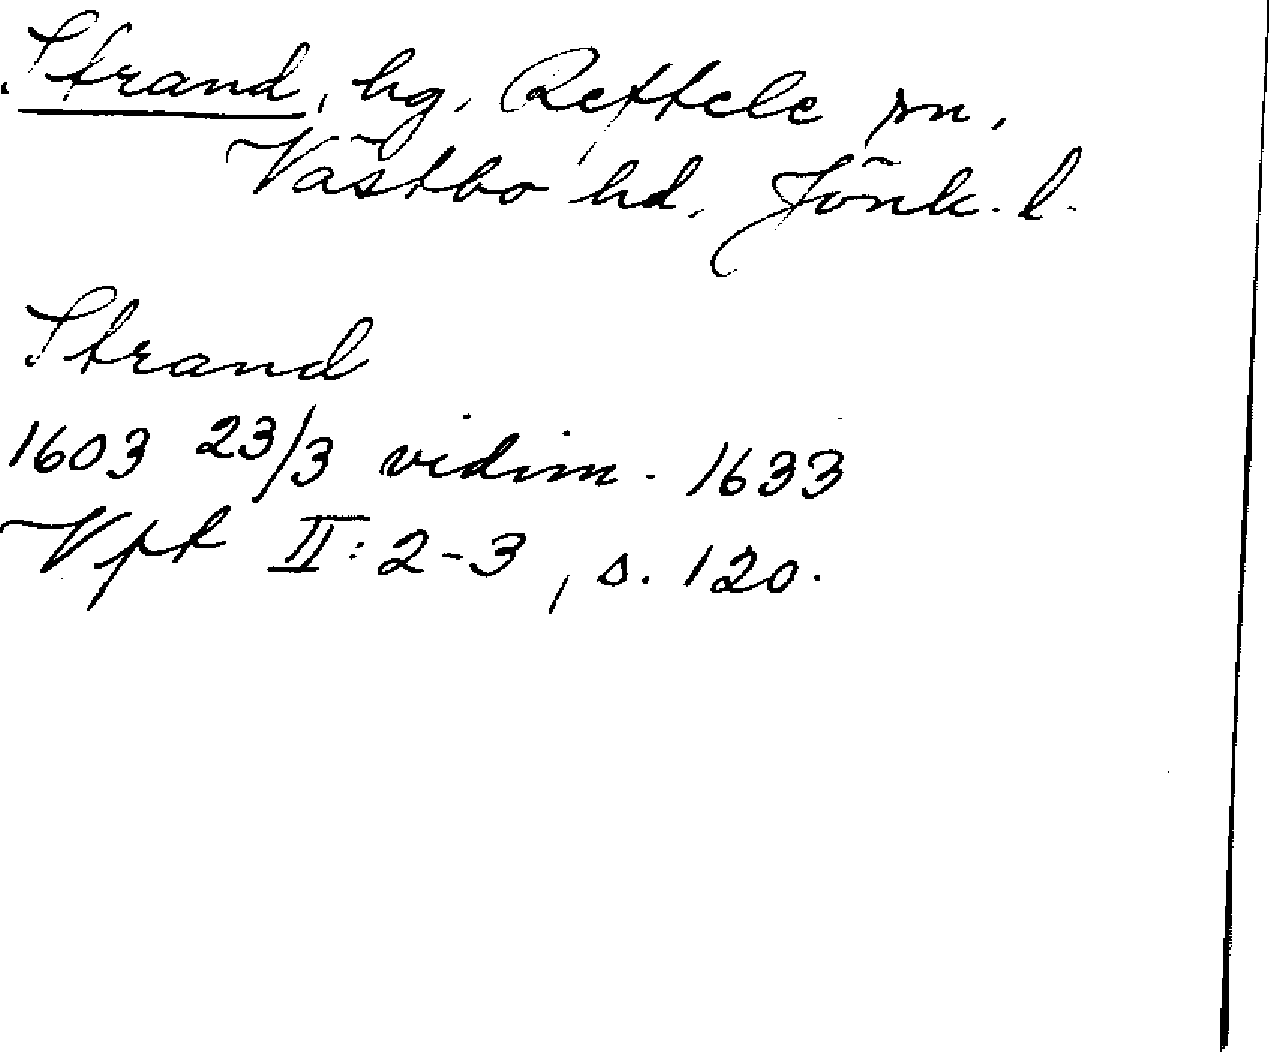 Strand, hg. Reftele sn,
Västbo hd. Jönk. l.
Strand
1603 23/3 vidim. 1633
Vpt II: 2-3, s. 120.